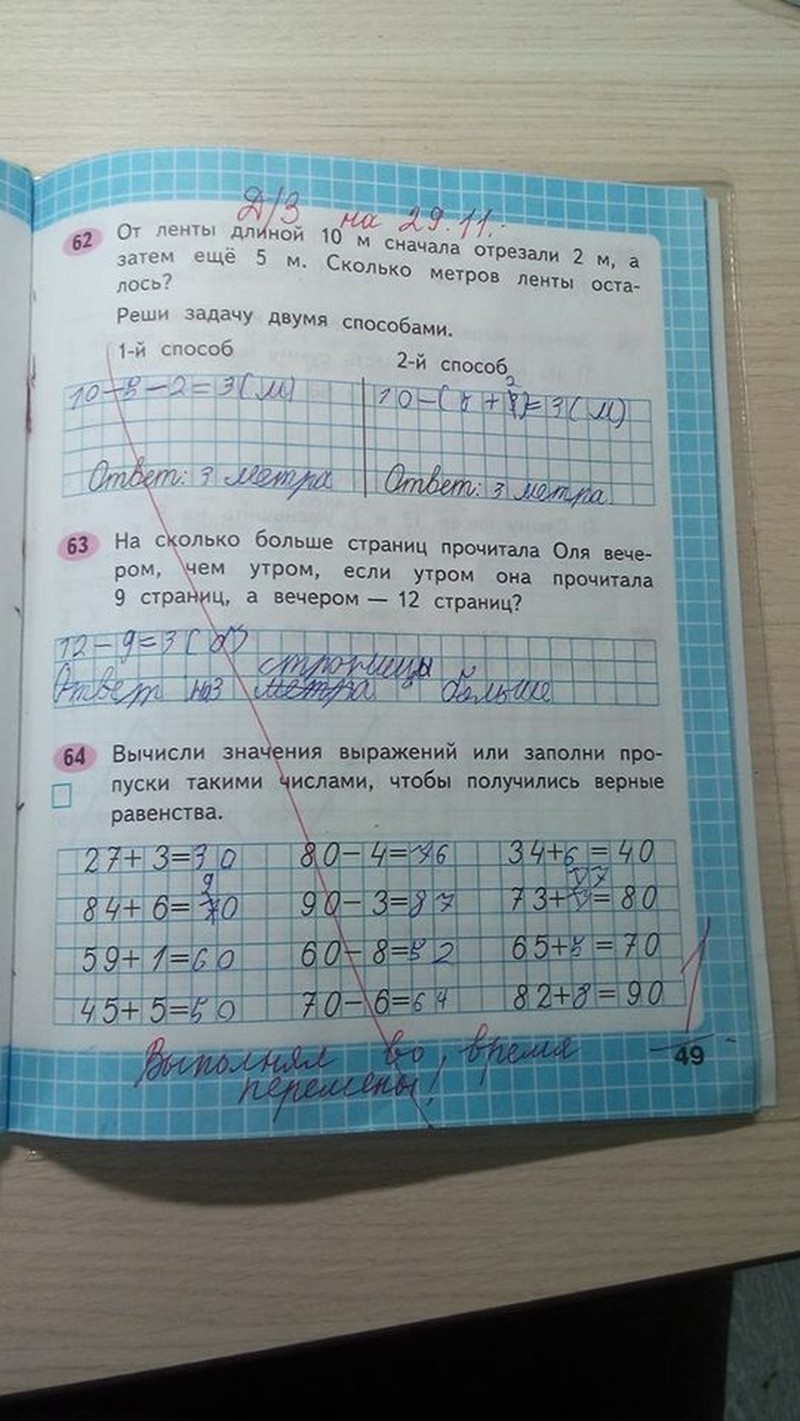 Д/З на 29.11.
62 От ленты длиной 10 м сначала отрезали 2 м, а
затем ещё 5 м. Сколько метров ленты оста-
лось?
Реши задачу двумя способами.
1-й способ
2-й способ
10-5-2=3(м)
10-( + )=3(м)
Ответ: 3 метра
Ответ: 3 метра.
63 На сколько больше страниц прочитала Оля вече-
ром, чем утром, если утром она прочитала
9 страниц, а вечером — 12 страниц?
12-9=3( )
страницы
Ответ на3 метра больше
64 Вычисли значения выражений или заполни про-
пуски такими числами, чтобы получились верные
равенства.
27+ 3=30 80- 4=76 34+6 = 40
84+ 6= 90 90- 3=87 73+7= 80
59+ 1=60 60- 8=52 65+5 = 70
45+ 5=50 70- 6=64 82+8 = 90
Выполнял во время
перемены!
1
49